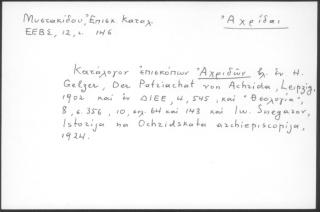 Μυστακίδου, Ἐπισκ Καταλ.
ΕΕΒΣ, 12, σ. 146
Ἀχρίδαι
Κατάλογον ἐπισκόπων Ἀχριδῶν βλ. ἐν H.
Gelzer, Der Patriachat von Achrida, Leipzig,
1902 καὶ ἐν ΔΙΕΕ, 4, 545, καὶ "Θεολογία",
8, σ. 356, 10, σελ. 64 καὶ 143 καὶ Iw. Snegarov,
Istorija na Ochridskata archiepiscopija,
1924.